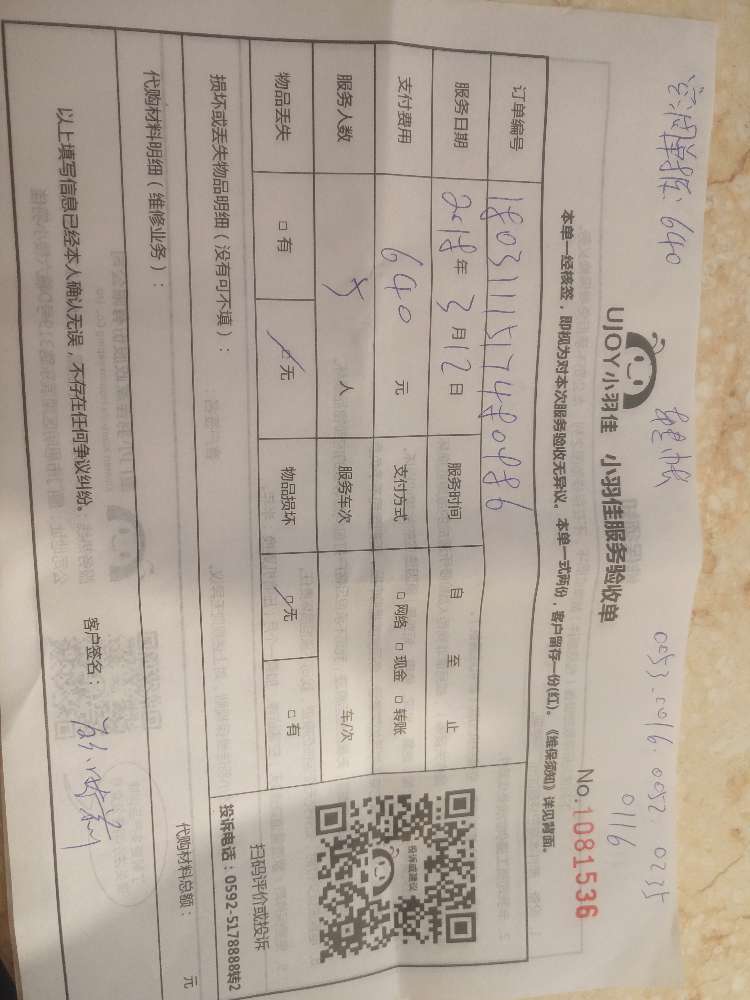 640
0053.0016.0052.0235
0116
UJOY小羽佳 小羽佳服务验收单
No.1081536
本单一经核签，即视为对本次服务验收无异议。本单一式两份，客户留存一份(红)。《维保须知》详见背面。
订单编号 1803111517480486
服务日期 2018年3月12日 服务时间 自 至 止
支付费用 640 元 支付方式 □网络 □现金 □转账
服务人数 5 人 服务车次 车/次
物品丢失 □有 □无 物品损坏 □无 □有
投诉或建议
扫码评价或投诉
投诉电话：0592-5178888转2
损坏或丢失物品明细（没有可不填）：
代购材料明细（维修业务）：
代购材料总额： 元
以上填写信息已经本人确认无误，不存在任何争议纠纷。 客户签名：